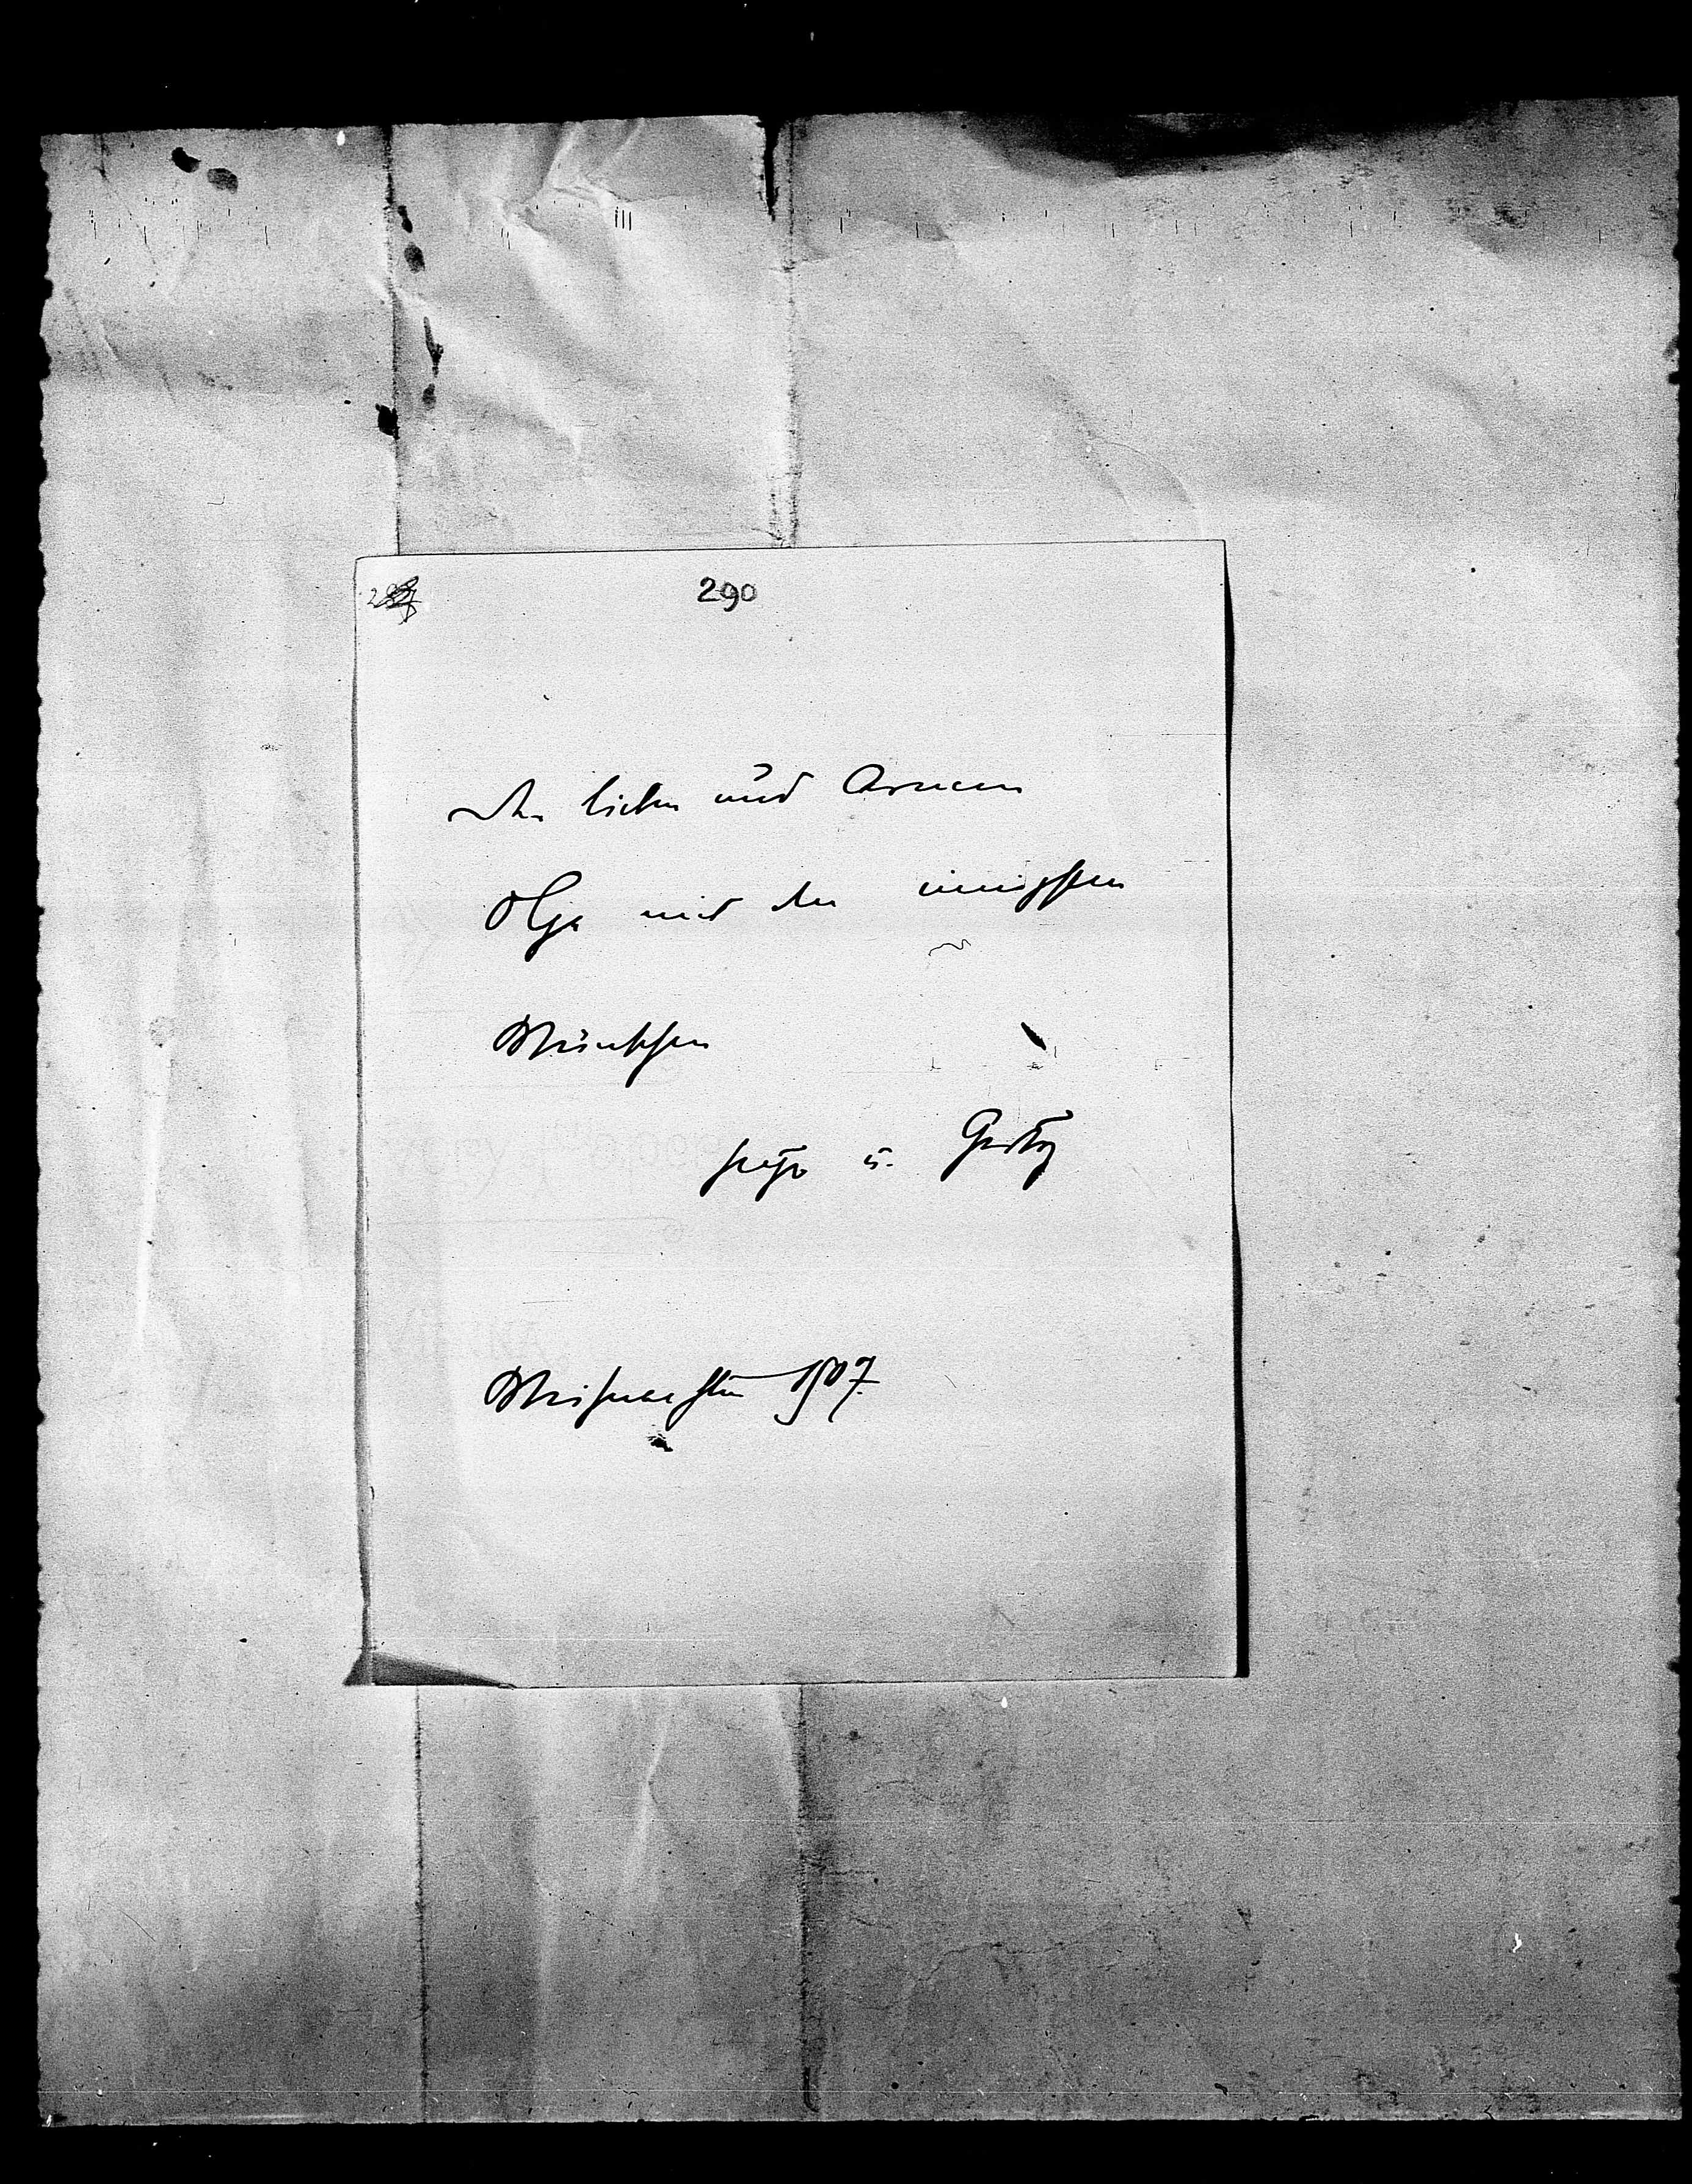 290
Der lieben und Armen
Olga mit den innigsten
Wünschen
Hugo u. Gerty
Weihnachten 1907.